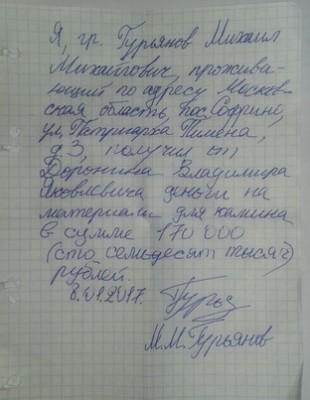 Я, гр. Гурьянов Михаил
Михайлович, прожива-
ющий по адресу Москов-
ская область, пос. Софрино,
ул. Патриарха Пимена,
д 3, получил от
Доронина Владимира
Яковлевича деньги на
материалы для камина
в сумме 170 000
(сто семьдесят тысяч)
рублей.
8.01.2017. Гурья
М.М. Гурьянов